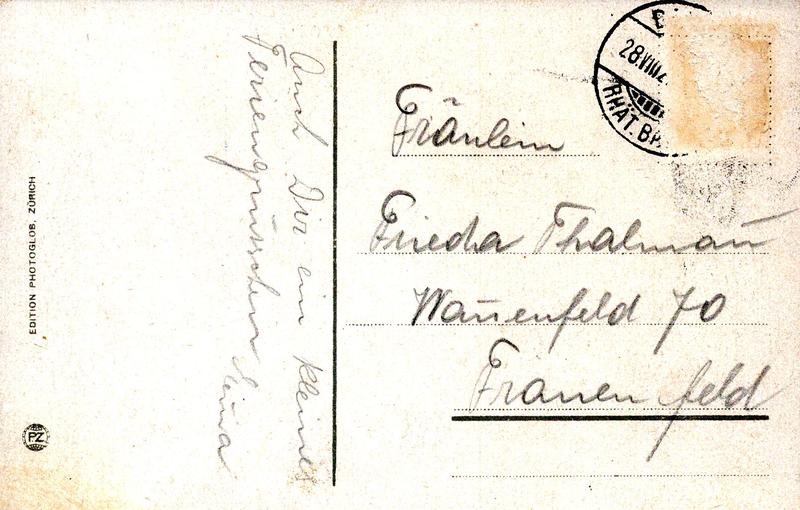 Auch Dir ein kleines
Feriengrüsschen
EDITION PHOTOGLOB, ZÜRICH
PZ
28.VIII.2
RHÄT. B
Fräulein
Frieda Thalmann
70
Frauenfeld